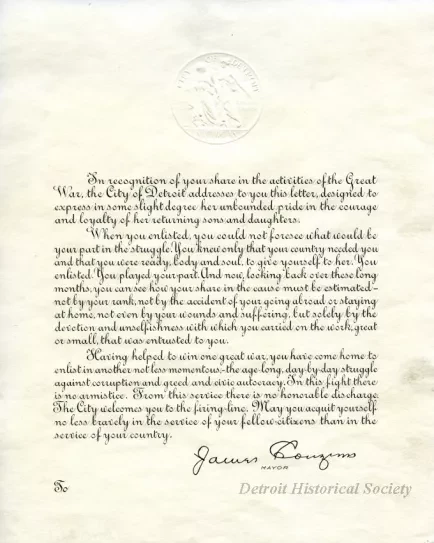 CITY OF DETROIT
In recognition of your share in the activities of the Great
War, the City of Detroit addresses to you this letter, designed to
express in some slight degree her unbounded pride in the courage
and loyalty of her returning sons and daughters.
When you enlisted, you could not foresee what would be
your part in the struggle. You knew only that your country needed you
and that you were ready, body and soul, to give yourself to her. You
enlisted. You played your part. And now, looking back over these long
months, you can see how your share in the cause must be estimated—
not by your rank, not by the accident of your going abroad or staying
at home, not even by your wounds and suffering, but solely by the
devotion and unselfishness with which you carried on the work, great
or small, that was entrusted to you.
Having helped to win one great war, you have come home to
enlist in another not less momentous,—the age-long, day-by-day struggle
against corruption and greed and civic autocracy. In this fight there
is no armistice. From this service there is no honorable discharge.
The City welcomes you to the firing-line. May you acquit yourself
no less bravely in the service of your fellow-citizens than in the
service of your country.
James Couzens
MAYOR
To
Detroit Historical Society